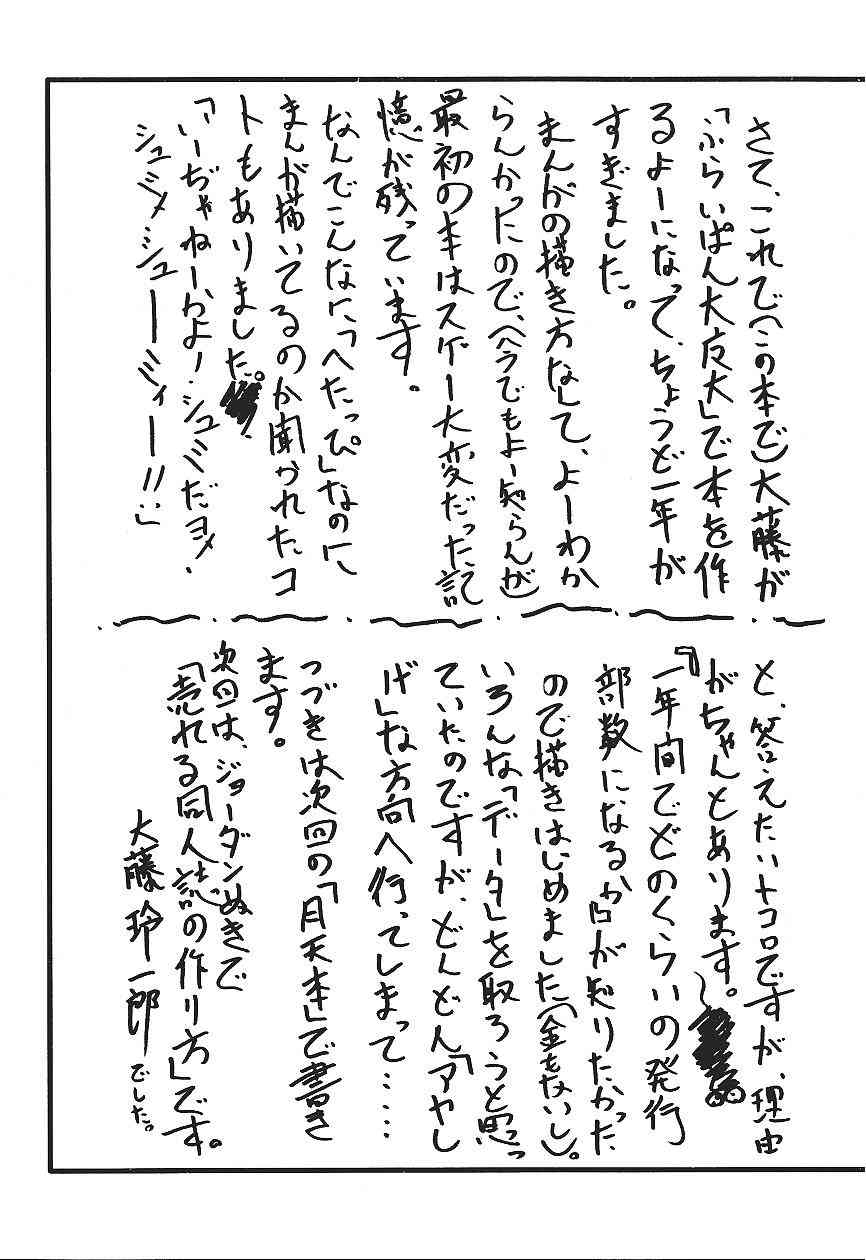 さて、これで(この本で)大藤が
「ふらいぱん大反大」で本を作
るよーになって、ちょうど一年が
すぎました。
まんがの描き方なして、よーわか
らんかったので、(今でもよー知らんが)
最初の本はスゲー大変だった記
憶が残っています。
なんでこんなに「へたっぴ」なのに
まんが描いてるのか聞かれたコ
トもありました。
「いーぢゃねーかよー・シュミだヨメ・
シュミメシューーミィー!!:」
と、答えたいトコロですが、理由
がちゃんとあります。
『一年間でどのくらいの発行
部数になるか』が知りたかった
ので描きはじめました(金もないし)。
いろんな「データ」を取ろうと思っ
ていたのですが、どんどん「アヤし
げ」な方向へ行ってしまって‥‥
つづきは次回の「月天本」で書き
ます。
次回は、ジョーダンぬきで
「売れる同人誌の作り方」です。
大藤玲一郎でした。